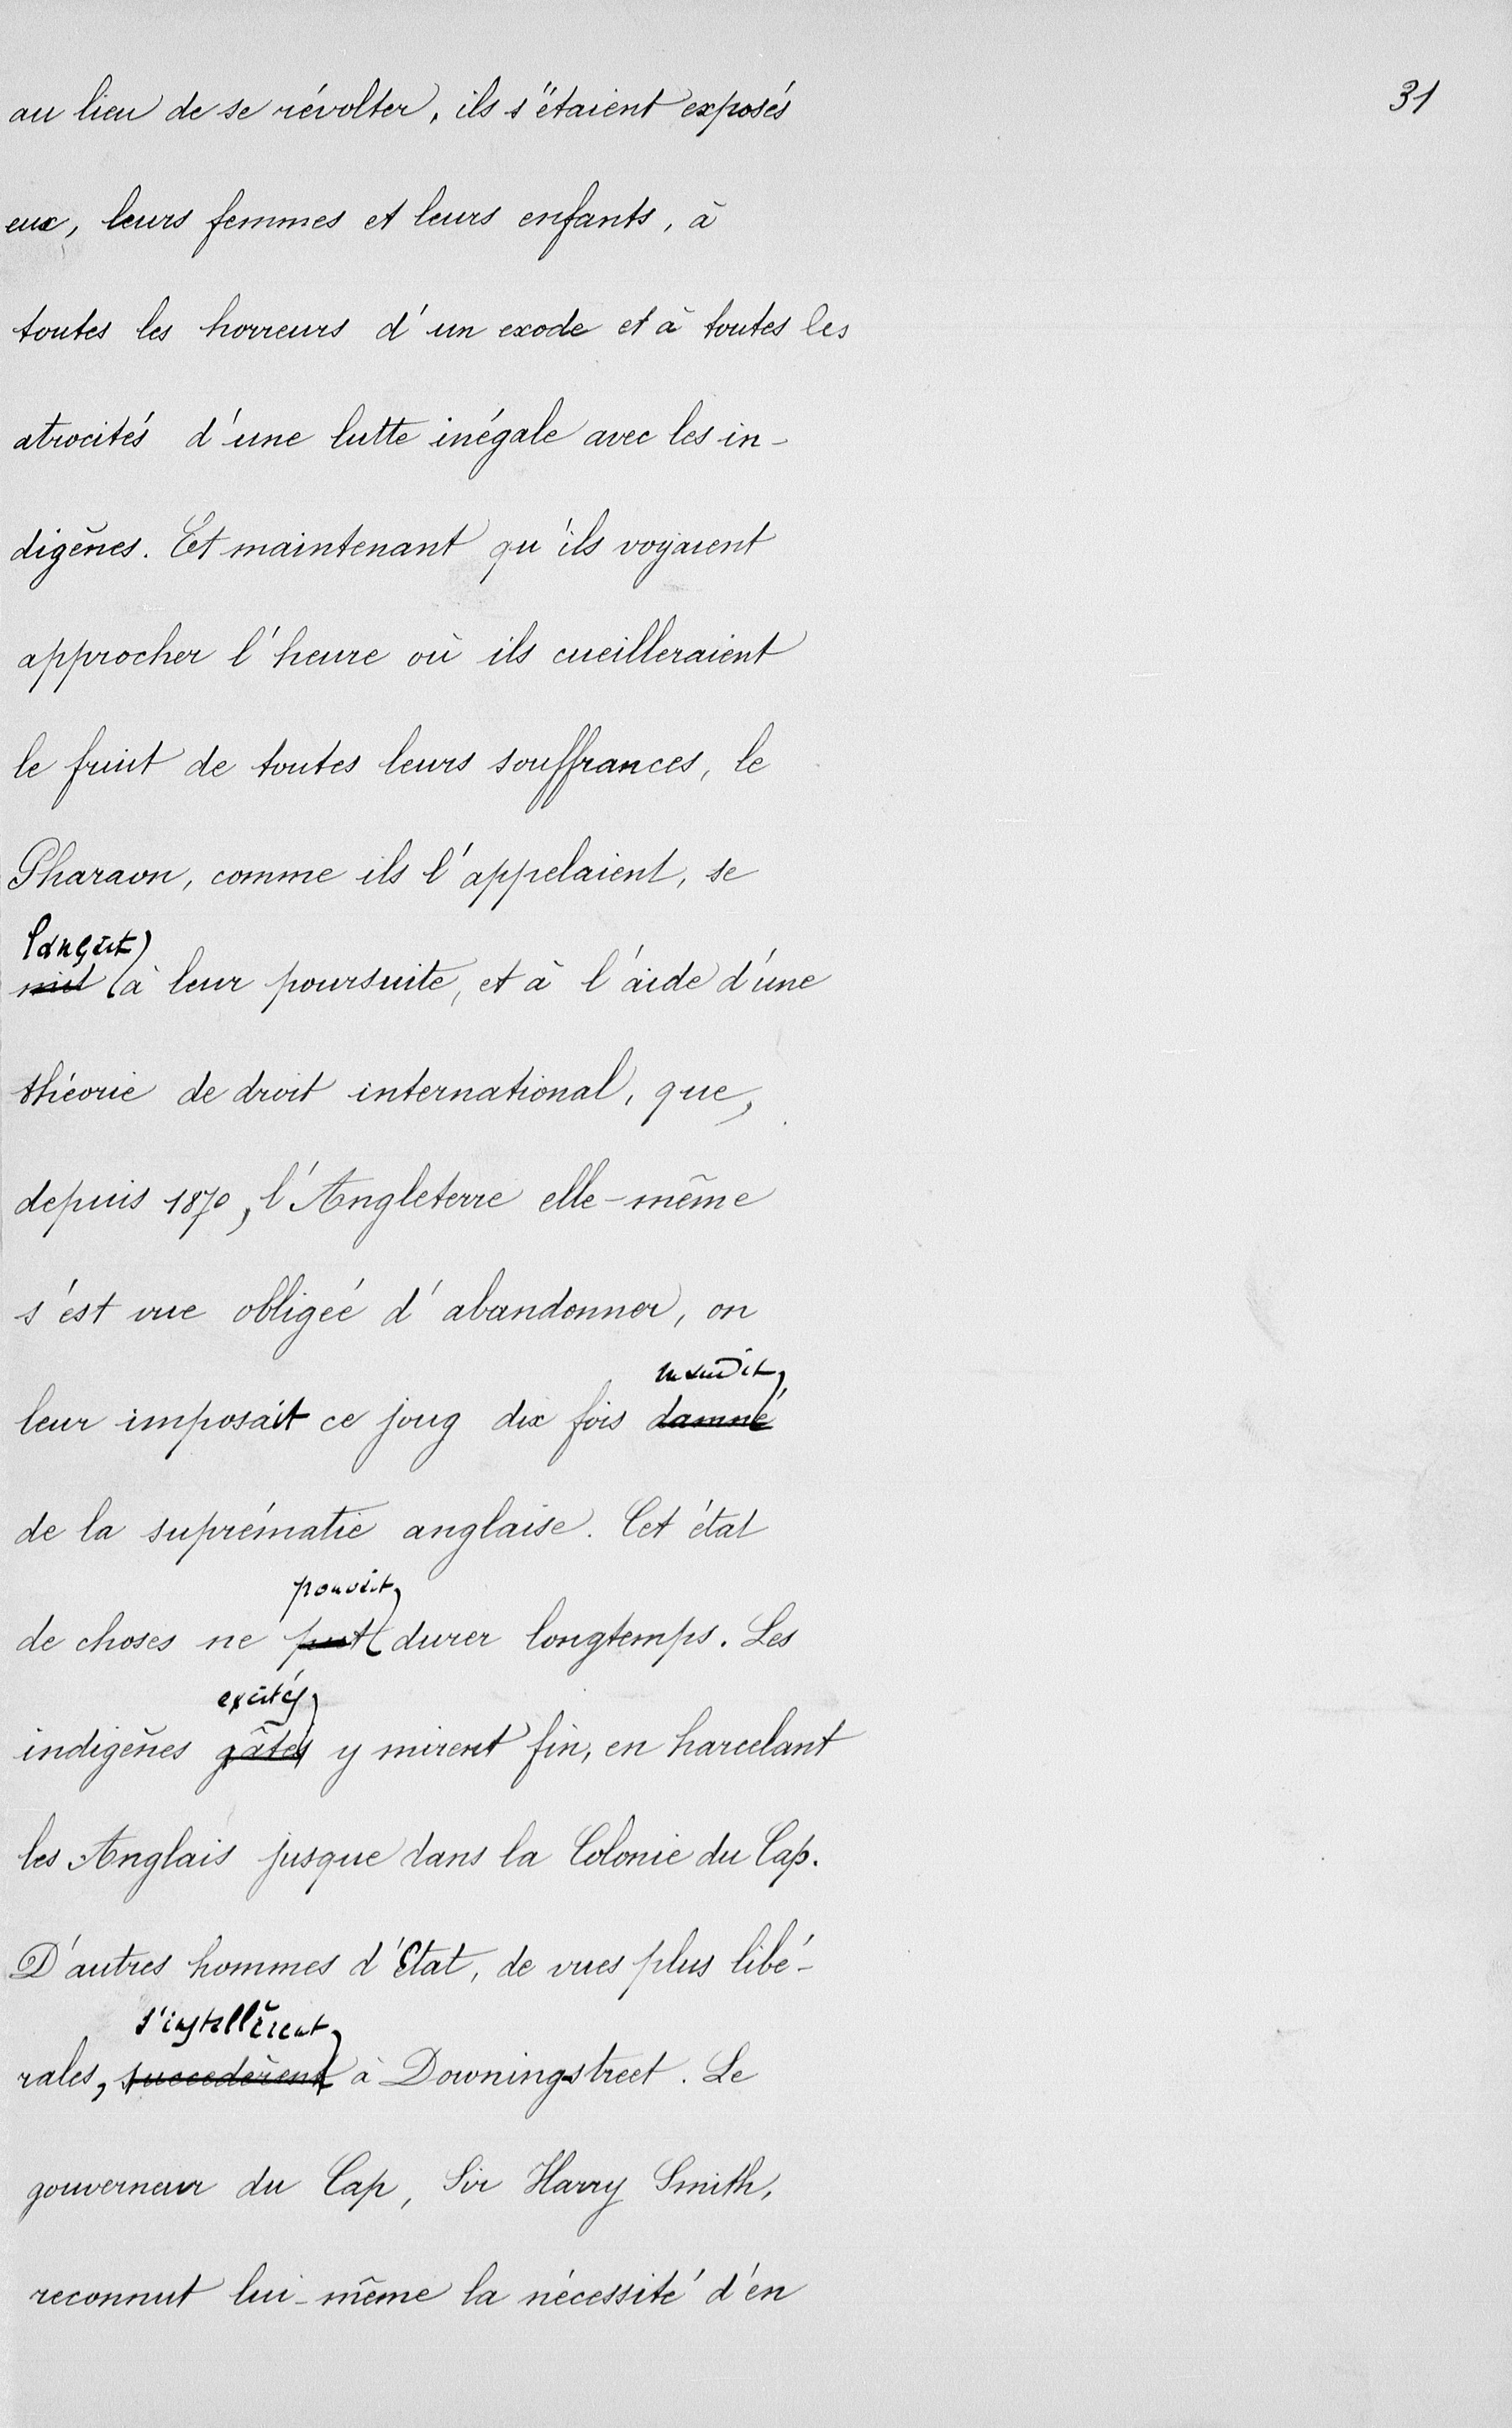 31
au lieu de se révolter, ils s'étaient exposés
eux, leurs femmes et leurs enfants, à
toutes les horreurs d'un exode et à toutes les
atrocités d'une lutte inégale avec les in-
digènes. Et maintenant qu'ils voyaient
approcher l'heure où ils cueilleraient
le fruit de toutes leurs souffrances, le
Pharaon, comme ils l'appelaient, se
lançait
mit à leur poursuite, et à l'aide d'une
théorie de droit international, que,
depuis 1870, l'Angleterre elle-même
s'est vue obligée d'abandonner, on
maudit
leur imposait ce joug dix fois damné
de la suprématie anglaise. Cet état
pouvait
de choses ne put durer longtemps. Les
excités
indigènes gâtés y mirent fin, en harcelant
les Anglais jusque dans la Colonie du Cap.
D'autres hommes d'Etat, de vues plus libé-
s'installèrent
rales, succedèrent à Downingstreet. Le
gouverneur du Cap, Sir Harry Smith,
reconnut lui-même la nécessité d'en